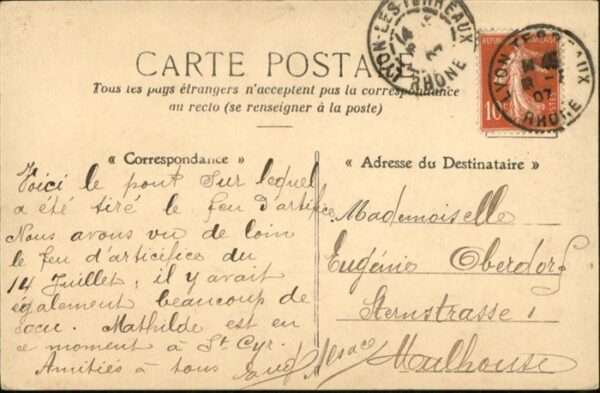 CARTE POSTALE
Tous les pays étrangers n'acceptent pas la correspondance
au recto (se renseigner à la poste)
LYON-LES-TERREAUX
RHONE
LYON TERREAUX
07
RHONE
10
« Correspondance »
Voici le pont sur lequel
a été tiré le feu d'artifice
Nous avons vu de loin
le feu d'articifice du
14 Juillet, il y avait
également beaucoup de
Mathilde est en
ce moment à St Cyr.
Amitiés à tous
« Adresse du Destinataire »
Mademoiselle
Eugénie Oberdorf
Sternstrasse 1
Mulhouse
Alsace